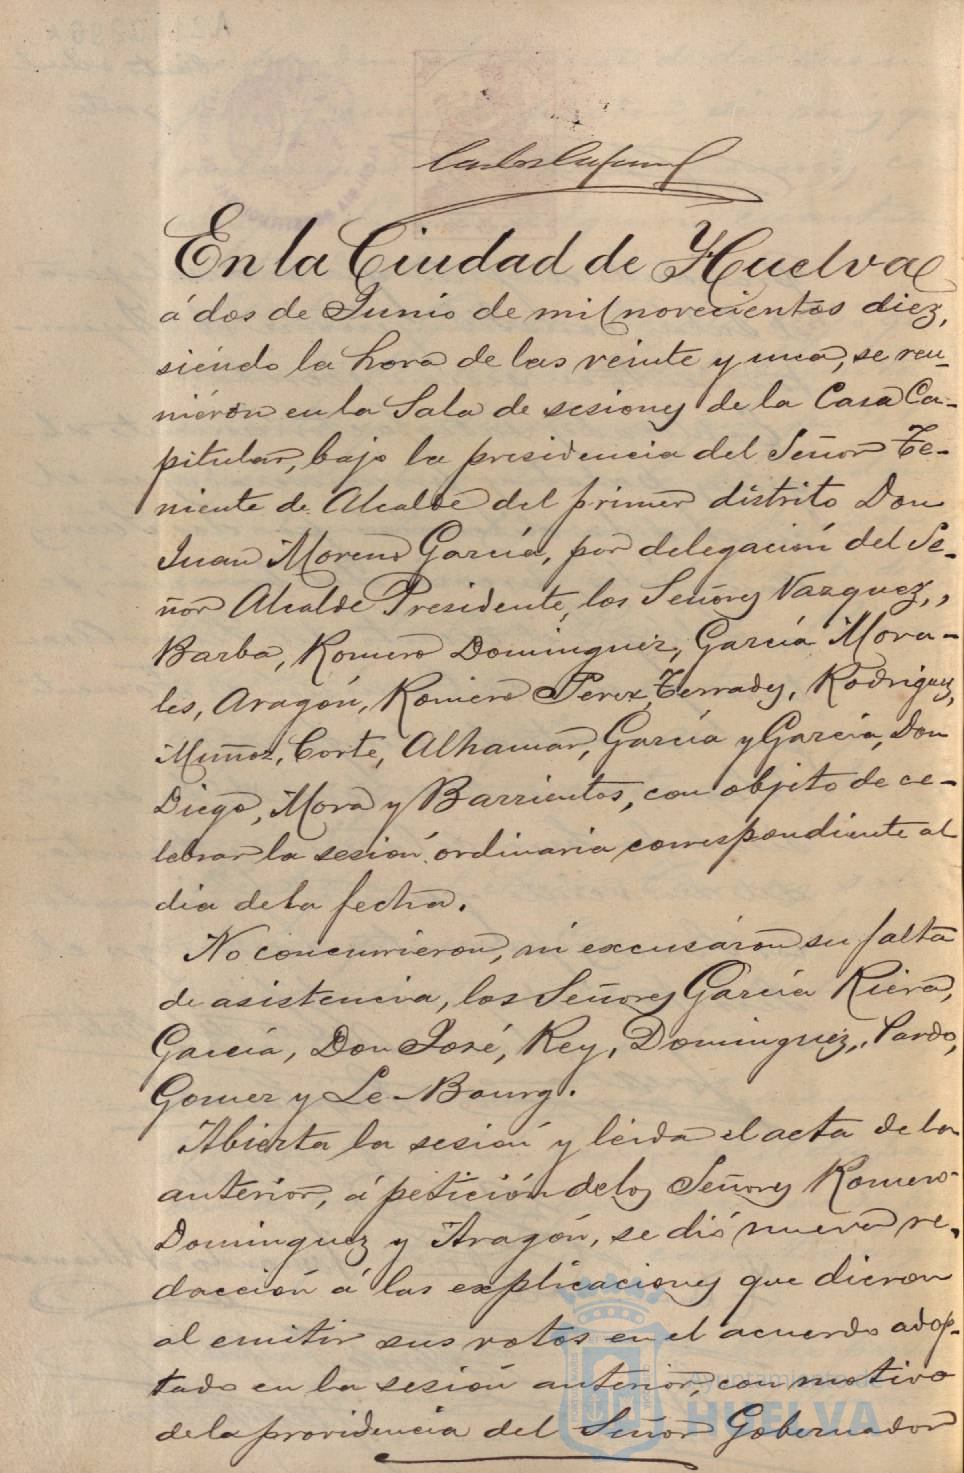 En la Ciudad de Huelva
á dos de Junio de mil novecientos diez,
siendo la hora de las veinte y una, se reu-
niéron en la Sala de sesiones de la Casa Ca-
pitular, bajo la presidencia del Señor Te-
niente de Alcalde del primer distrito Don
Juan Moreno García, por delegación del Se-
ñor Alcalde Presidente, los Señores Vazquez,
Barba, Romero Dominguez, García Mora-
les, Aragón, Romero Perez, Terrades, Rodriguez,
Muñoz, Corte, Alhamar, García y García, Don
Diego, Mora y Barrientos, con objeto de ce-
lebrar la sesión ordinaria correspondiente al
dia de la fecha.
No concurrieron, ni excusáron su falta
de asistencia, los Señores García Riera,
García, Don José, Rey, Dominguez, Pardo,
Gomez y Le-Bourg.
Abierta la sesión y leida el acta de la
anterior, á petición de los Señores Romero
Dominguez y Aragón, se dió nueva re-
dacción á las explicaciones que dieron
al emitir sus votos en el acuerdo adop-
tado en la sesión anterior, con motivo
de la providencia del Señor Gobernador
Ayuntamiento de
HUELVA